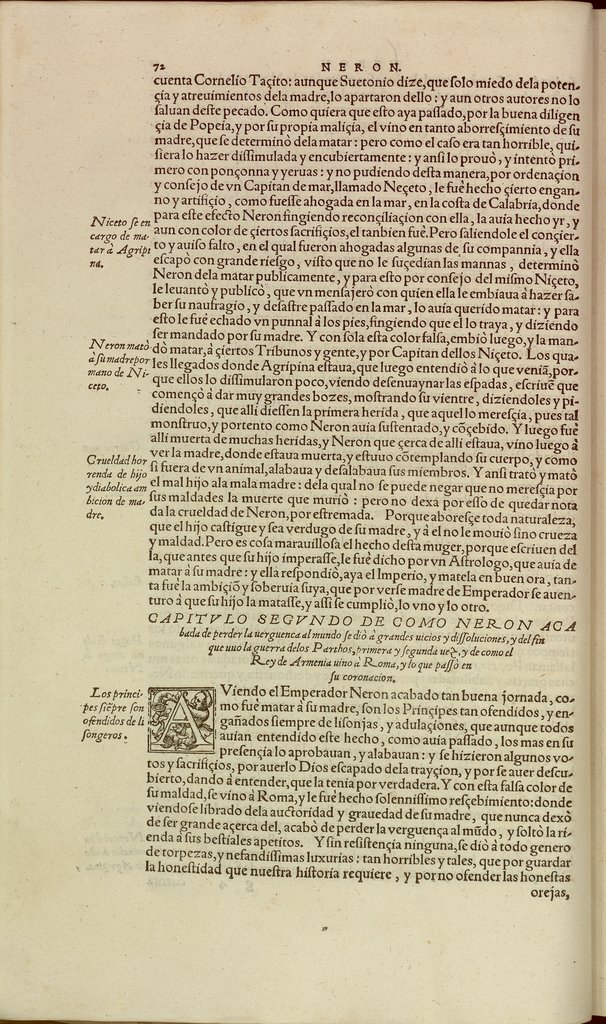 72 NERON.
cuenta Cornelio Taçito: aunque Suetonio dize, que ſolo miedo dela poten-
çia y atreuimientos dela madre, lo apartaron dello: y aun otros autores no lo
ſaluan deſte pecado. Como quiera que eſto aya paſſado, por la buena diligen
çia de Popeia, y por ſu propia maliçia, el vino en tanto aborreſçimiento de ſu
madre, que ſe determinò dela matar: pero como el caſo era tan horrible, qui-
ſiera lo hazer diſſimulada y encubiertamente: y anſi lo prouò, y intentò pri-
mero con ponçonna y yeruas: y no pudiendo deſta manera, por ordenaçion
y conſejo de vn Capitan de mar, llamado Neçeto, le fuè hecho çierto engan-
no y artifiçio, como fueſſe ahogada en la mar, en la coſta de Calabria, donde
para eſte efecto Neron fingiendo reconçiliaçion con ella, la auia hecho yr, y
aun con color de çiertos ſacrifiçios, el tanbien fuè. Pero ſaliendole el conçier-
to y auiſo falto, en el qual fueron ahogadas algunas de ſu compannia, y ella
eſcapò con grande rieſgo, viſto que no le ſuçedian las mannas, determinò
Neron dela matar publicamente, y para eſto por conſejo del miſmo Niçeto,
le leuantò y publicò, que vn menſajerò con quien ella le embiaua à hazer ſa-
ber ſu naufragio, y deſaſtre paſſado en la mar, lo auia querido matar: y para
eſto le fuè echado vn punnal à los pies, fingiendo que el lo traya, y diziendo
ſer mandado por ſu madre. Y con ſola eſta color falſa, embiò luego, y la man-
dò matar, à çiertos Tribunos y gente, y por Capitan dellos Niçeto. Los qua-
les llegados donde Agripina eſtaua, que luego entendiò a lo que venia, por-
que ellos lo diſſimularon poco, viendo deſenuaynar las eſpadas, eſcriuẽ que
començò a dar muy grandes bozes, moſtrando ſu vientre, diziendoles y pi-
diendoles, que alli dieſſen la primera herida, que aquel lo mereſçia, pues tal
monſtruo, y portento como Neron auia ſuſtentado, y cõçebido. Y luego fuè
alli muerta de muchas heridas, y Neron que çerca de alli eſtaua, vino luego à
ver la madre, donde eſtaua muerta, y eſtuuo cõtemplando ſu cuerpo, y como
ſi fuera de vn animal, alabaua y deſalabaua ſus miembros. Y anſi tratò y matò
el mal hijo ala mala madre: dela qual no ſe puede negar que no mereſçia por
ſus maldades la muerte que muriò: pero no dexa por eſſo de quedar nota
da la crueldad de Neron, por eſtremada. Porque aboreſçe toda naturaleza,
que el hijo caſtigue y ſea verdugo de ſu madre, y à el no le mouiò ſino crueza
y maldad. Pero es coſa marauilloſa el hecho deſta muger, porque eſcriuen del
la, que antes que ſu hijo imperaſſe, le fuè dicho por vn Aſtrologo, que auia de
matar à ſu madre: y ella reſpondiò, aya el Imperio, y matela en buen ora, tan-
ta fuè la ambiçiõ y ſoberuia ſuya, que por verſe madre de Emperador ſe auen-
turo à que ſu hijo la mataſſe, y aſſi ſe cumpliò, lo vno y lo otro.
Niceto ſe en
cargo de ma-
tar à Agripi
na.
Neron matò
à ſu madre por
mano de Ni-
ceto.
Crueldad hor
renda de hijo
y diabolica am
bicion de ma-
dre.
CAPITVLO SEGVNDO DE COMO NERON ACA
bada de perder la uerguenca al mundo ſe diò à grandes uicios y diſſoluciones, y del fin
que uuo la guerra delos Parthos, primera y ſegunda uez, y de como el
Rey de Armenia uino à Roma, y lo que paſſò en
ſu coronacion.
Los princi-
pes ſiẽpre ſon
ofendidos de li
ſongeros.
AViendo el Emperador Neron acabado tan buena jornada, co-
mo fuè matar à ſu madre, ſon los Prinçipes tan ofendidos, y en-
gañados ſiempre de liſonjas, y adulaçiones, que aunque todos
auian entendido eſte hecho, como auia paſſado, los mas en ſu
preſençia lo aprobauan, y alabauan: y ſe hizieron algunos vo-
tos y ſacrifiçios, por auerlo Dios eſcapado dela trayçion, y por ſe auer deſcu-
bierto, dando à entender, que la tenia por verdadera. Y con eſta falſa color de
ſu maldad, ſe vino à Roma, y le fuè hecho ſolenniſſimo reſçebimiento: donde
viendoſe librado dela auctoridad y grauedad de ſu madre, que nunca dexò
de ſer grande açerca del, acabò de perder la verguença al mũdo, y ſoltò la ri-
enda a ſus beſtiales apetitos. Y ſin reſiſtençia ninguna, ſe diò à todo genero
de torpezas, y nefandiſſimas luxurias: tan horribles y tales, que por guardar
la honeſtidad que nueſtra hiſtoria requiere, y por no ofender las honeſtas
orejas,